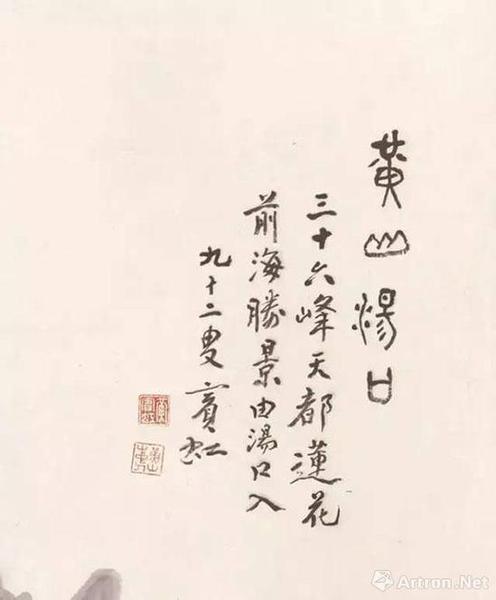 黄山湯口
三十六峰天都蓮花
前海勝景由湯口入
九十二叟賓虹
Artron.Net